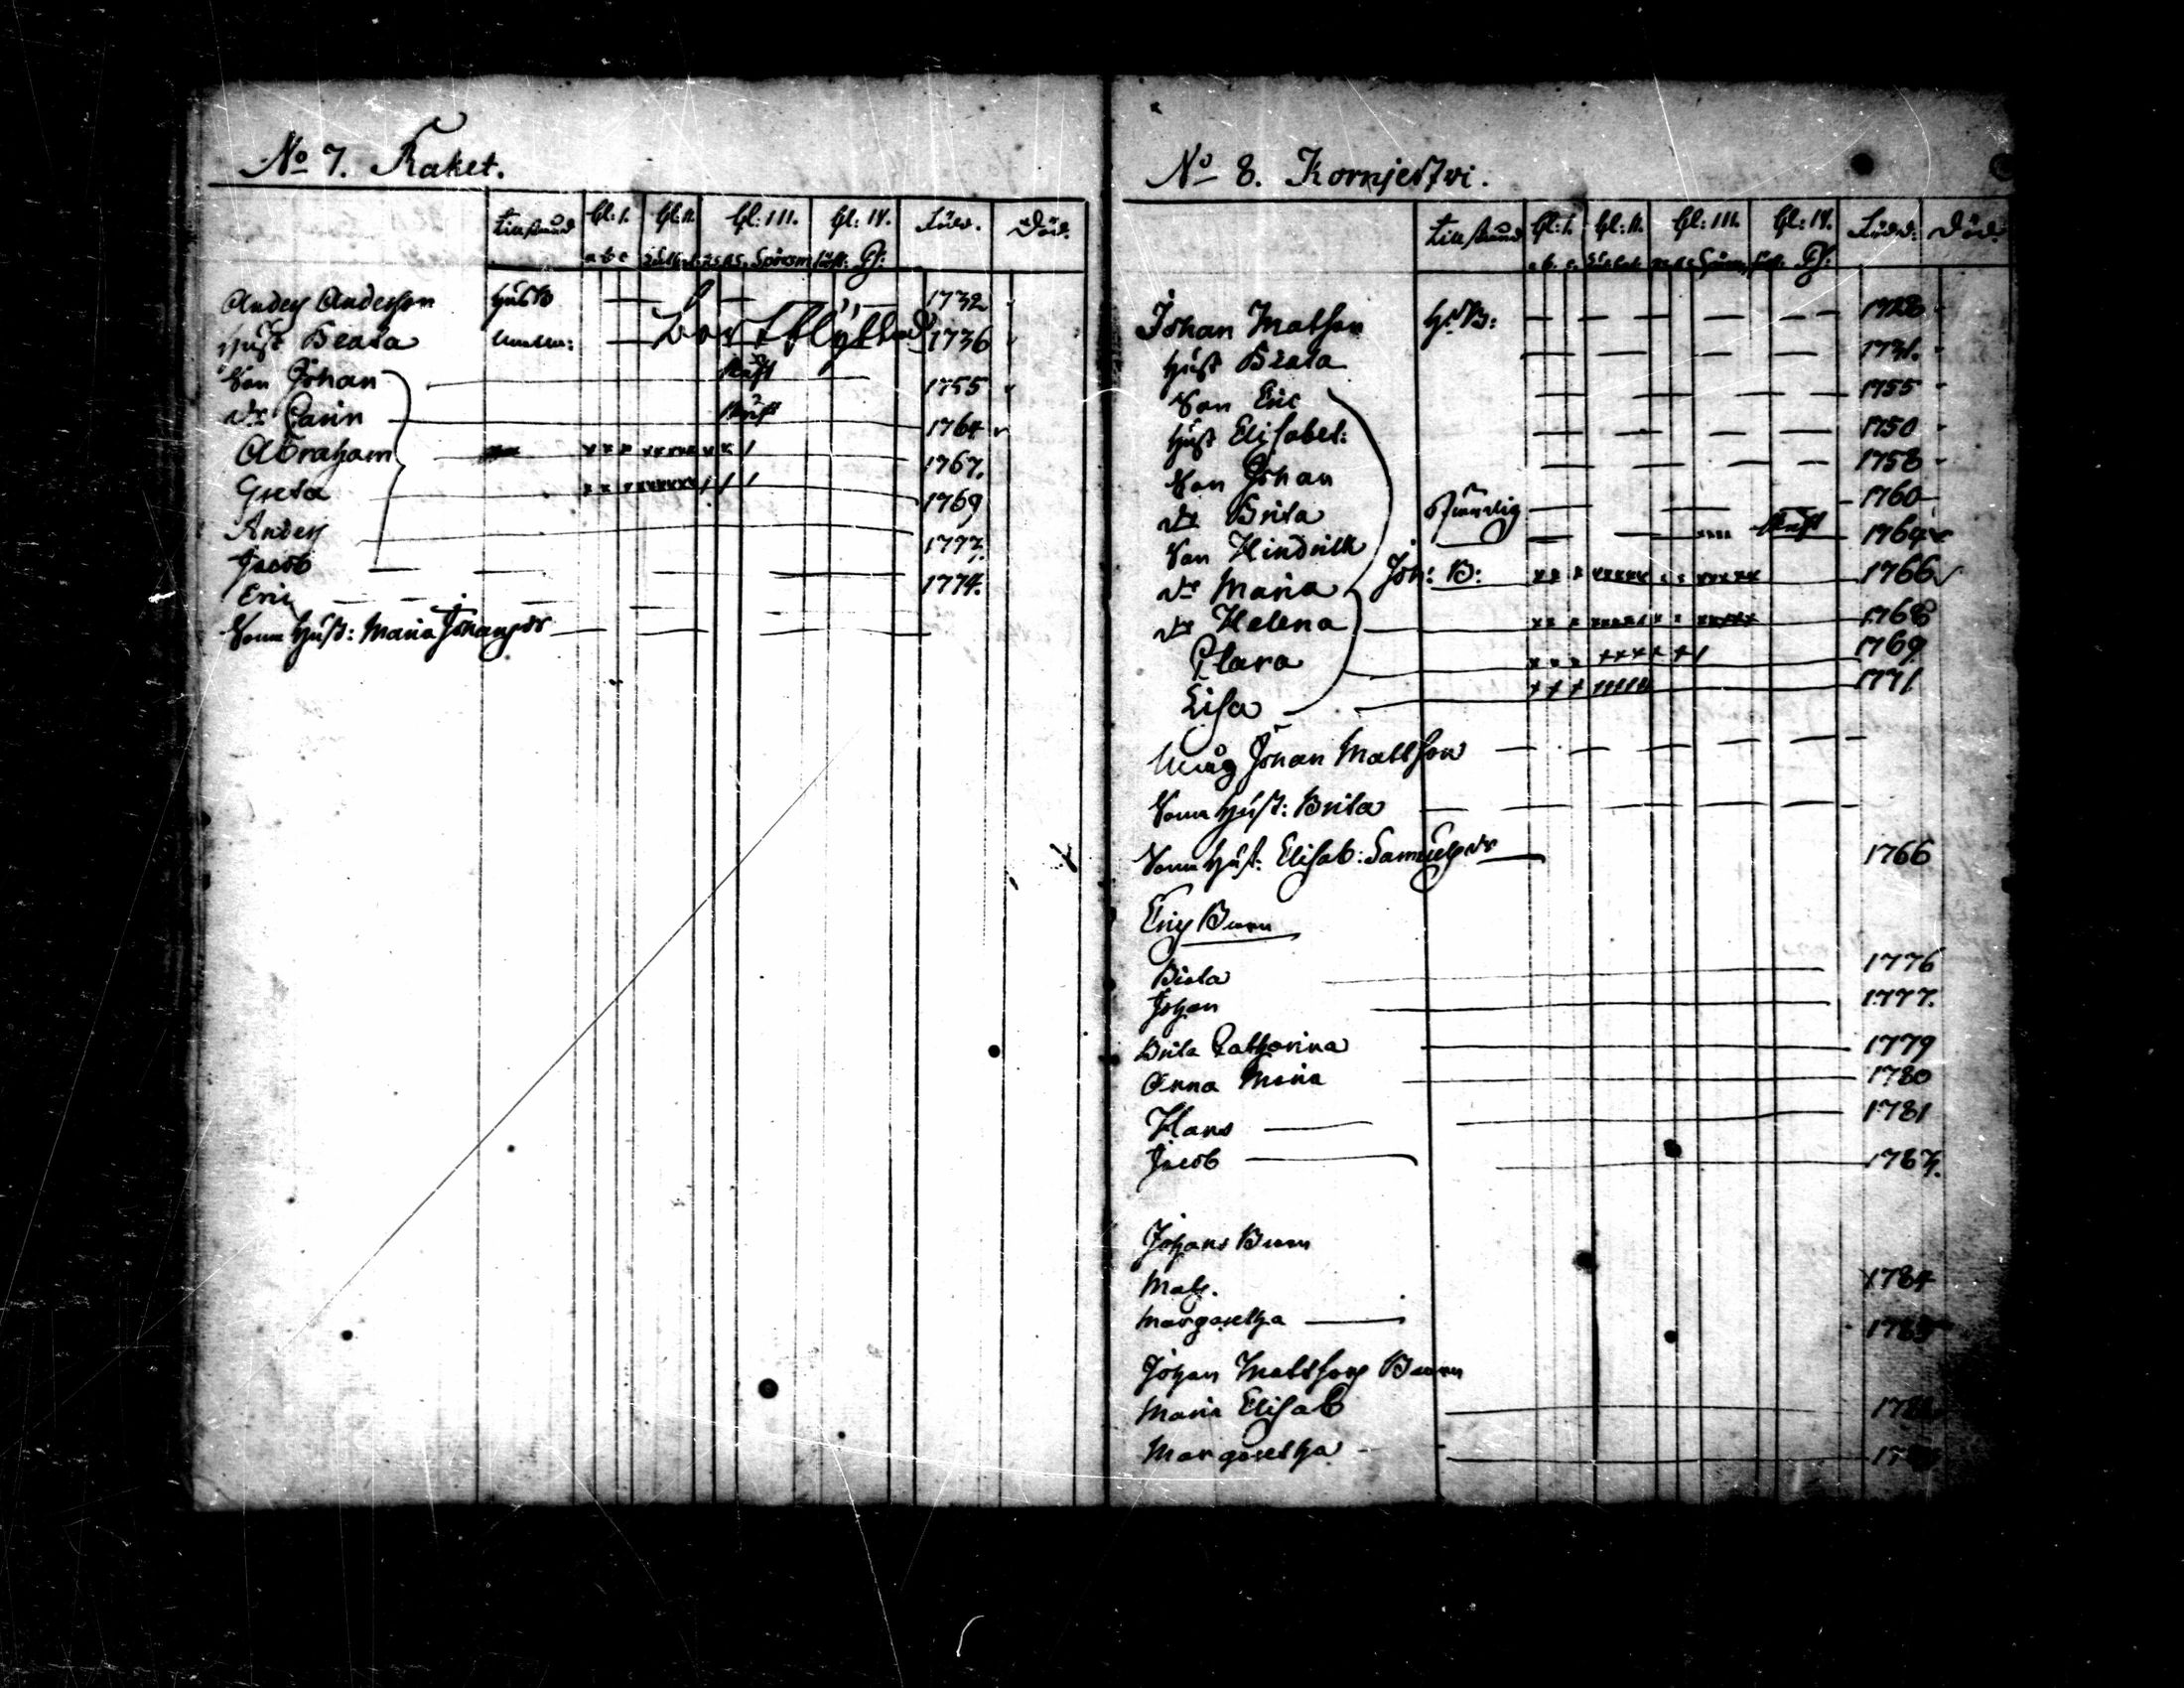 No 7. Kaket.
Tillstånd Cl: I. Cl: II. Cl: III. Cl: IV. Född. Död.
a b c
Anders Andersson 1732
Hust Beata Bortflyttad 1736
Son Johan 1755
Dr Carin 1764
Abraham 1767.
Greta 1769
Anders 1773.
Jacob 1774.
Eric
Sonh Hust: Maria Johansdr
No 8. Kornjestvi.
Tillstånd Cl: I. Cl: II. Cl: III. Cl: IV. Född: Död.
a b. c.
Johan Matsson H: B: 1728
Hust Beata 1731.
Son Eric 1755
Hust Elisabet: 1750
Son Johan 1758
Dr Brita 1760
Son Hindrich 1764
Dr Maria Joh: B: 1766
Dr Helena 1768
Clara 1769
Lisa 1771
Måg Johan Mattsson
Sonh Hust: Brita
Sonh Hust: Elisab: Samuelsdr 1766
Erics Barn
Beata 1776
Johan 1777.
Brita Catharina 1779
Anna Maria 1780
Hans 1781
Jacob 1783.
Johans Barn
Mats. 1784
Margaretha
Johan Mattsons Barn
Maria Elisab
Margaretha